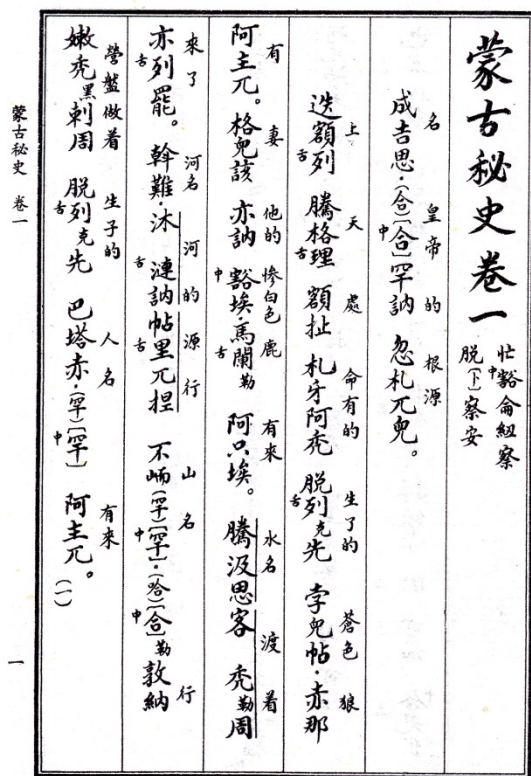 蒙古秘史卷一
忙中豁侖紐察
脱〔卜〕察安
名 皇帝的 根源
成吉思·(合)〔中合〕罕訥 忽札兀兒。
上 天 處 命有的 生了的 蒼色 狼
迭額舌列 騰格理 額扯 札牙阿禿 脱舌列克先 孛兒帖·赤那
有 妻 他的 慘白色 鹿 有來 水名 渡着
阿主兀。格兒該 亦訥 中豁埃·馬舌闌勒 阿只埃。 騰汲思客 禿勒周
來了 河名 河的源行 山名 行
亦舌列罷。斡難·沐舌漣訥帖舌里兀捏 不峏(罕)〔中罕〕·(哈)〔中合〕勒敦納
營盤做着 生子的 人名 有來
嫩禿黑剌周 脱舌列克先 巴塔赤·(罕)〔中罕〕 阿主兀。(一)
蒙古秘史 卷一
一